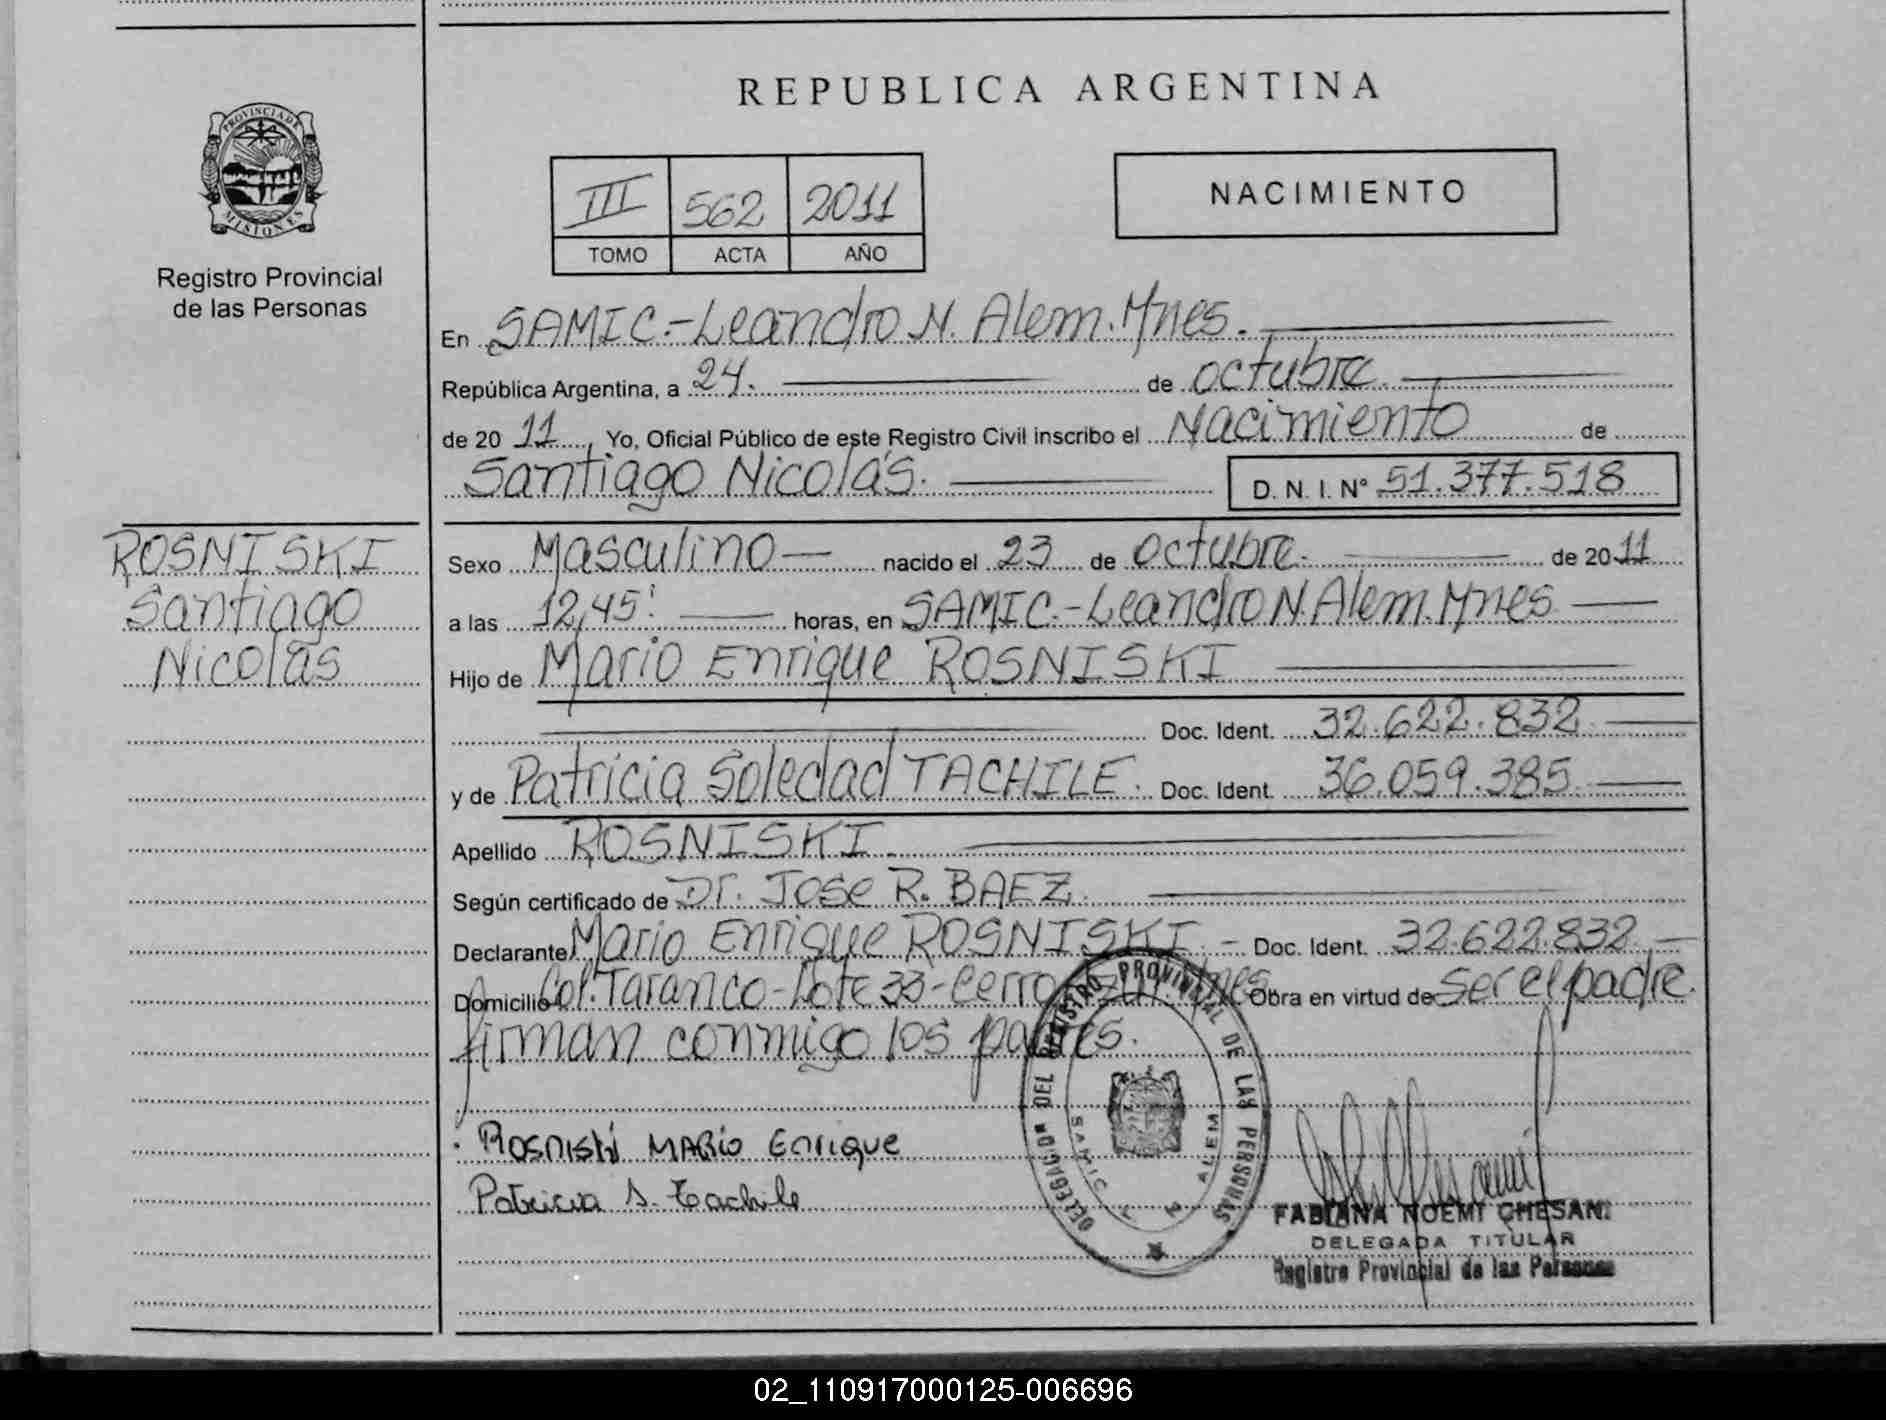 REPUBLICA ARGENTINA
PROVINCIA DE
MISIONES
Registro Provincial
de las Personas
III 562 2011
TOMO ACTA AÑO
NACIMIENTO
En SAMIC.-Leandro N. Alem. Mnes.
República Argentina, a 24. de octubre
de 20 11, Yo, Oficial Público de este Registro Civil inscribo el Nacimiento de
Santiago Nicolás. D. N. I. Nº 51.377.518
ROSNISKI
Santiago
Nicolás
Sexo Masculino nacido el 23 de octubre. de 2011
a las 12,45' horas, en SAMIC.-Leandro N. Alem. Mnes
Hijo de Mario Enrique ROSNISKI
Doc. Ident. 32.622.832
y de Patricia Soledad TACHILE. Doc. Ident. 36.059.385
Apellido ROSNISKI
Según certificado de Dr. Jose R. BAEZ.
Declarante Mario Enrique ROSNISKI.- Doc. Ident. 32.622.832
Domicilio Col. Taranco-Lote 33-Cerro Azul. Mnes. Obra en virtud de ser el padre.
firman conmigo los padres.
Rosniski MARio Enrique
Patricia S. Tachile
DELEGACION DEL REGISTRO PROVINCIAL DE LAS PERSONAS
SAMIC
ALEM
FABIANA NOEMI CHESANI
DELEGADA TITULAR
Registro Provincial de las Personas
02_110917000125-006696